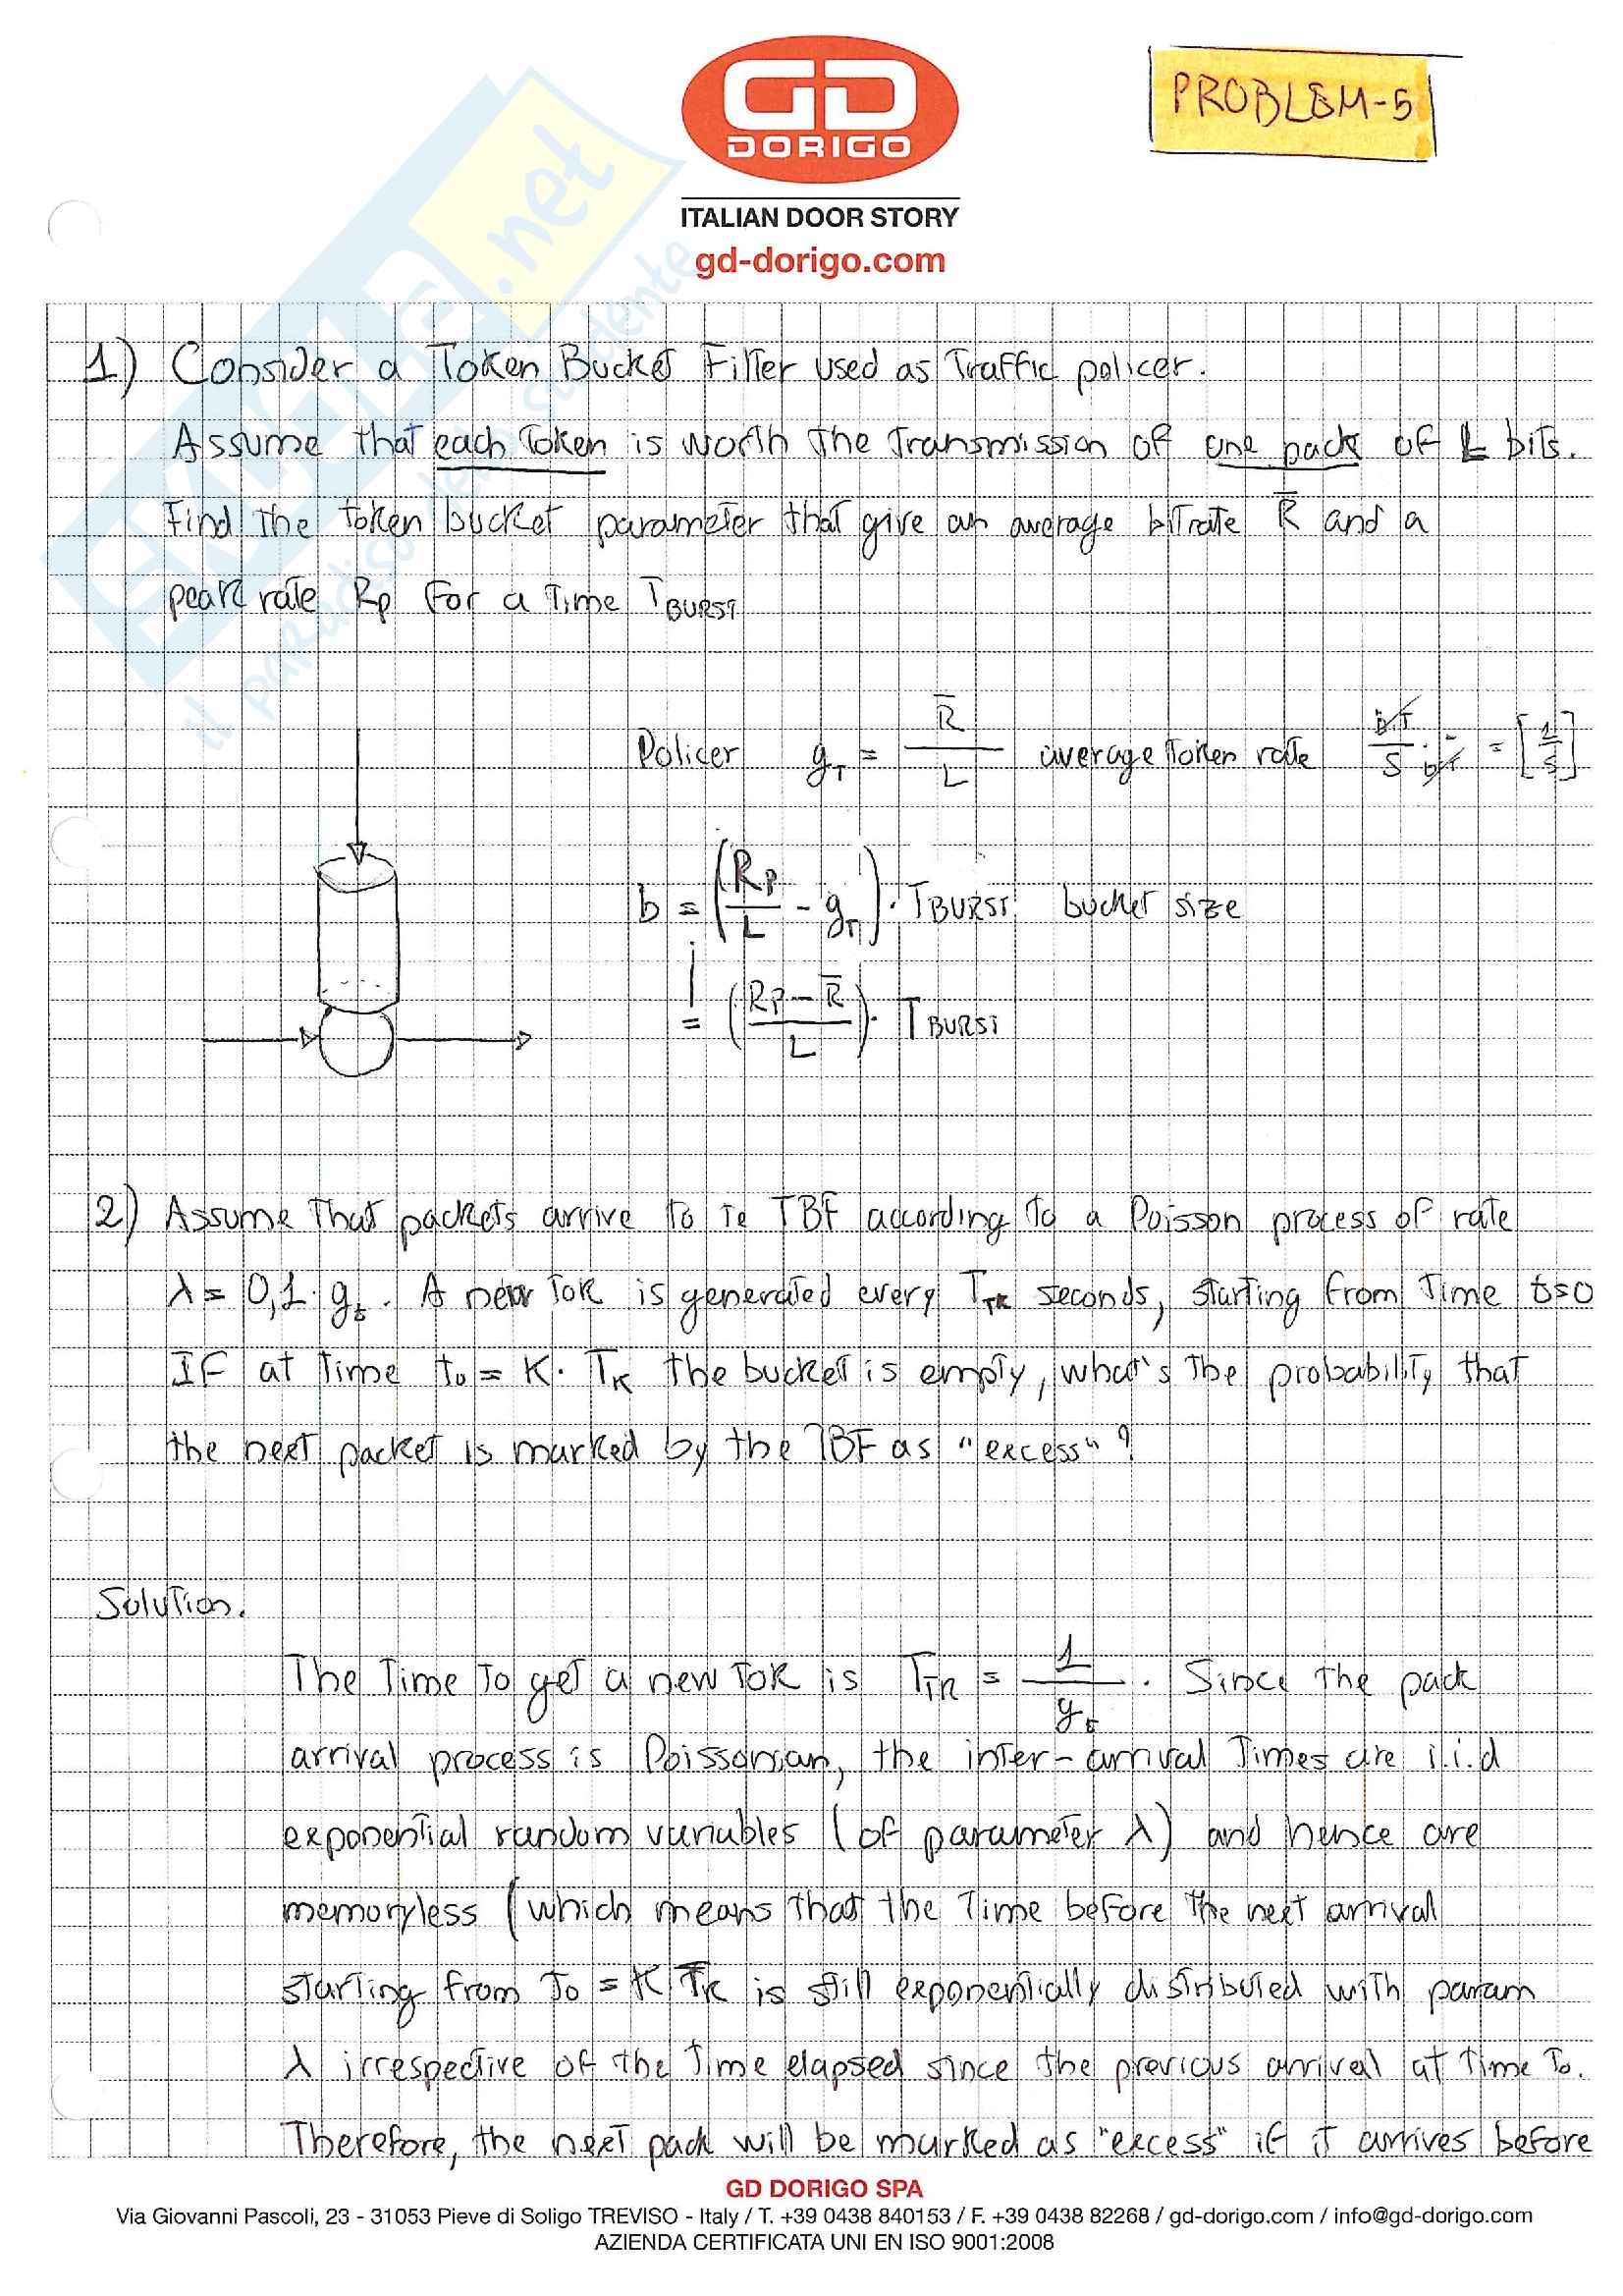 GD
DORIGO
ITALIAN DOOR STORY
gd-dorigo.com
PROBLEM-5
SKUOLA.net
il paradiso dello studente
1) Consider a Token Bucket Filter used as Traffic policer.
Assume that each Token is worth the transmission of one pack of L bits.
Find the token bucket parameter that give an average bitrate R̅ and a
peak rate Rp for a time TBURST
Policer gT = R̅ / L average token rate bit/s · 1/bit = [1/s]
b = (Rp/L - gT) · TBURST bucket size
= ((Rp - R̅)/L) · TBURST
2) Assume that packets arrive to te TBF according to a Poisson process of rate
λ = 0,1 · gt. A new tok is generated every TTK seconds, starting from time t=0
IF at time t0 = K · TK the bucket is empty, what's the probability that
the next packet is marked by the TBF as "excess"?
Solution.
The time to get a new tok is TTK = 1/gt. Since the pack
arrival process is Poissonian, the inter-arrival times are i.i.d
exponential random variables (of parameter λ) and hence are
memoryless (which means that the time before the next arrival
starting from t0 = K TK is still exponentially distributed with param
λ irrespective of the time elapsed since the previous arrival at time t0.
Therefore, the next pack will be marked as "excess" if it arrives before
GD DORIGO SPA
Via Giovanni Pascoli, 23 - 31053 Pieve di Soligo TREVISO - Italy / T. +39 0438 840153 / F. +39 0438 82268 / gd-dorigo.com / info@gd-dorigo.com
AZIENDA CERTIFICATA UNI EN ISO 9001:2008